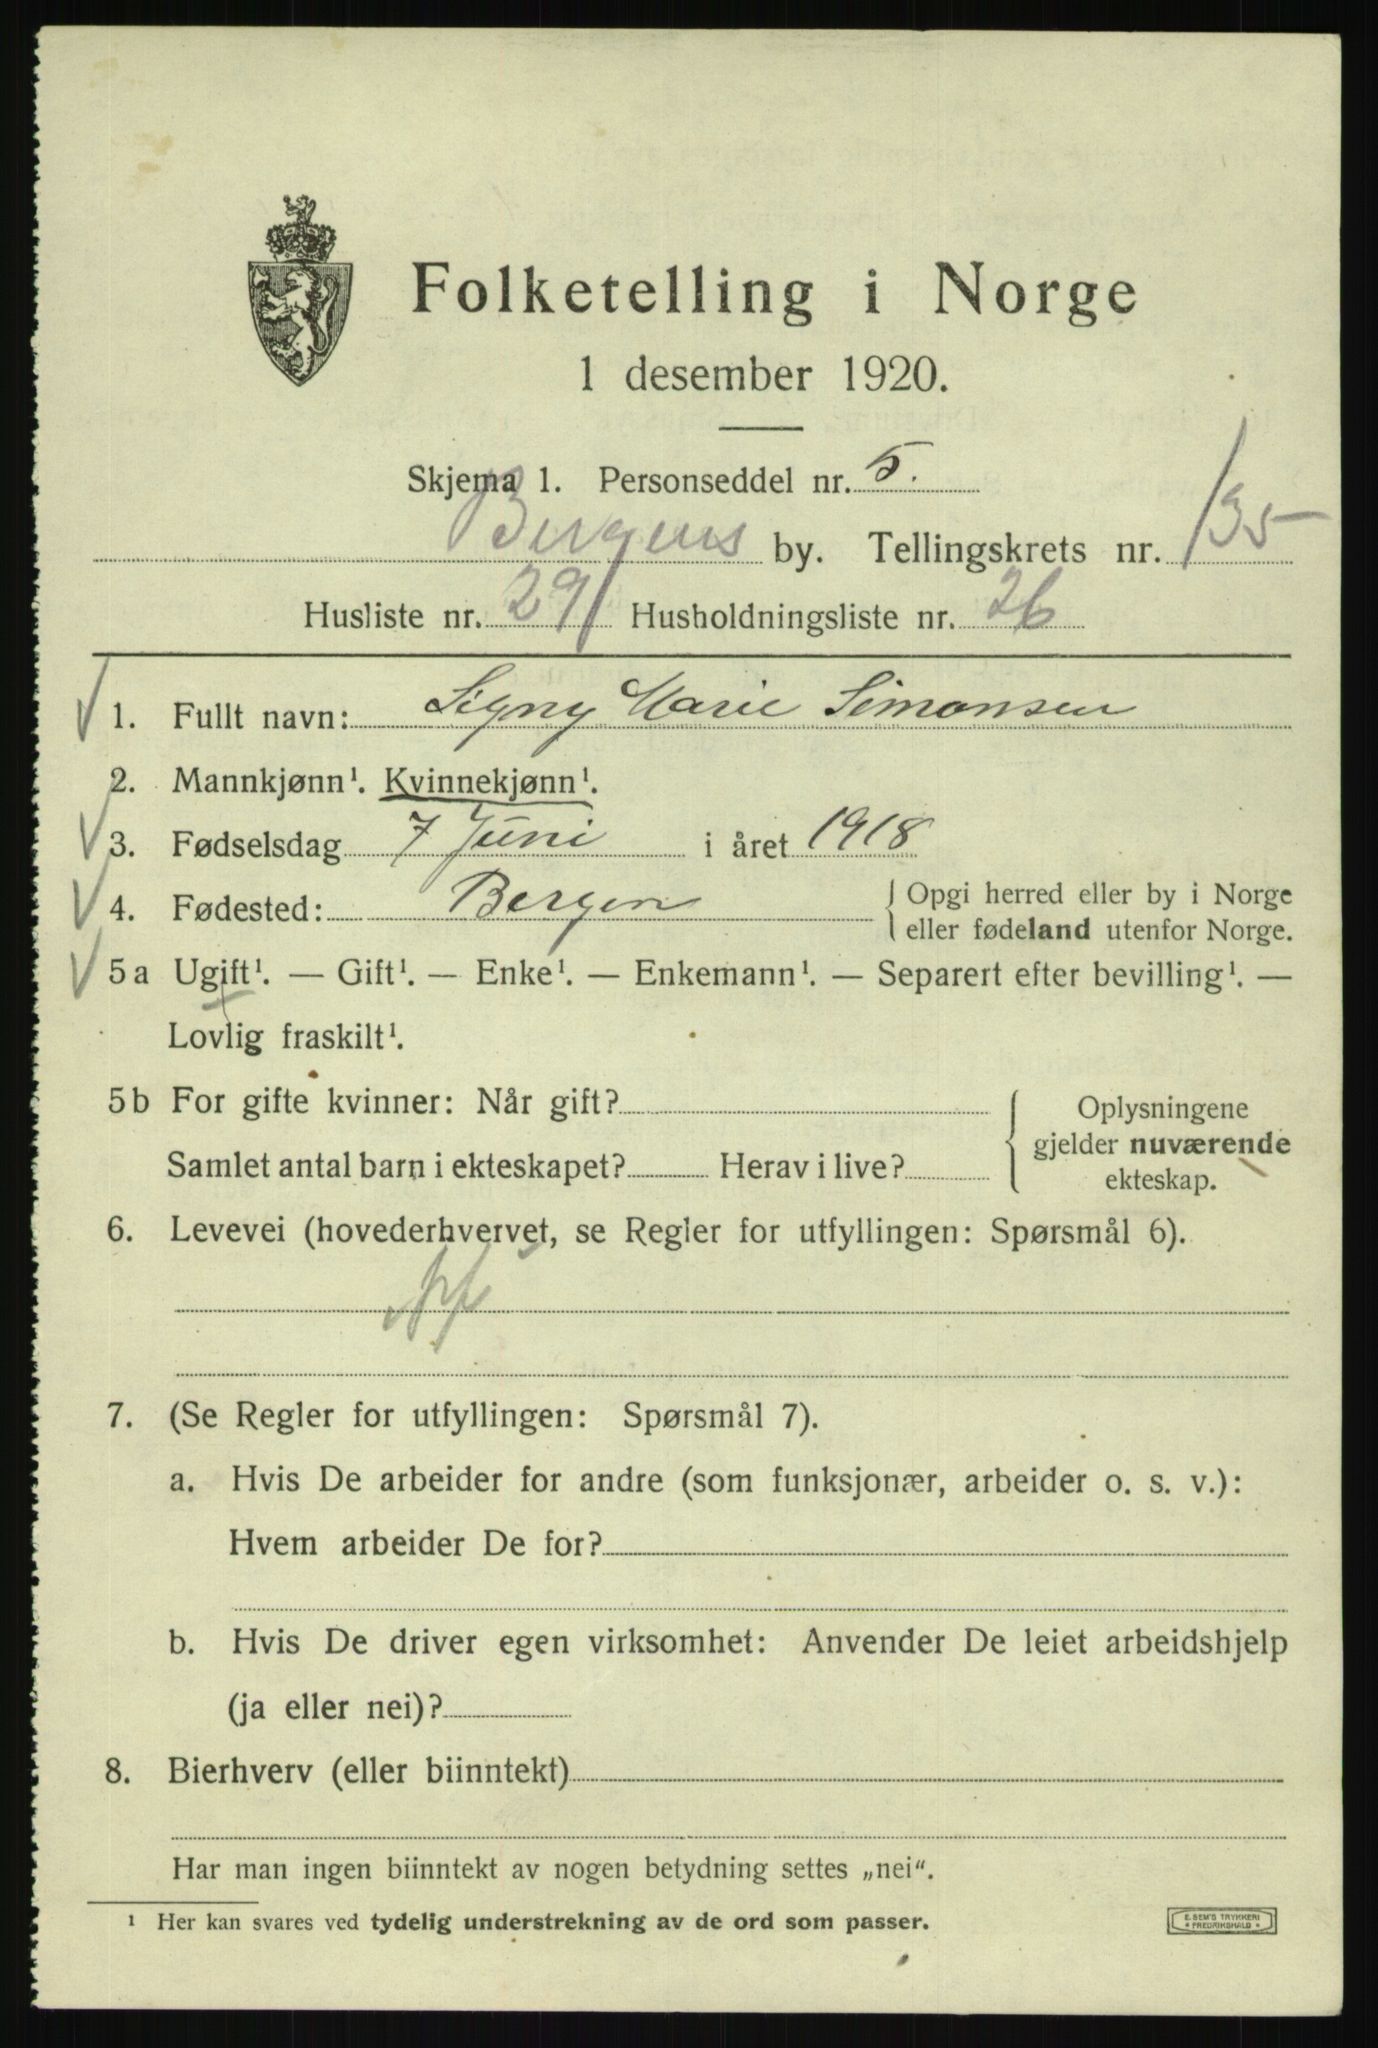 Folketelling i Norge
1 desember 1920.
Skjema 1. Personseddel nr. 5.
Bergens by. Tellingskrets nr. 135
Husliste nr. 291 Husholdningsliste nr. 26
1. Fullt navn: Signy Marie Simonsen
2. Mannkjønn¹. Kvinnekjønn¹.
3. Fødselsdag 7 Juni i året 1918
4. Fødested: Bergen { Opgi herred eller by i Norge
eller fødeland utenfor Norge.
5a Ugift¹. — Gift¹. — Enke¹. — Enkemann¹. — Separert efter bevilling¹. —
Lovlig fraskilt¹.
5b For gifte kvinner: Når gift? { Oplysningene
gjelder nuværende
Samlet antal barn i ekteskapet? Herav i live?
ekteskap.
6. Levevei (hovederhvervet, se Regler for utfyllingen: Spørsmål 6).
7. (Se Regler for utfyllingen: Spørsmål 7).
a. Hvis De arbeider for andre (som funksjonær, arbeider o. s. v.):
Hvem arbeider De for?
b. Hvis De driver egen virksomhet: Anvender De leiet arbeidshjelp
(ja eller nei)?
8. Bierhverv (eller biinntekt)
Har man ingen biinntekt av nogen betydning settes „nei".
¹ Her kan svares ved tydelig understrekning av de ord som passer.
E. SEM'S TRYKKERI
* FREDRIKSHALD *